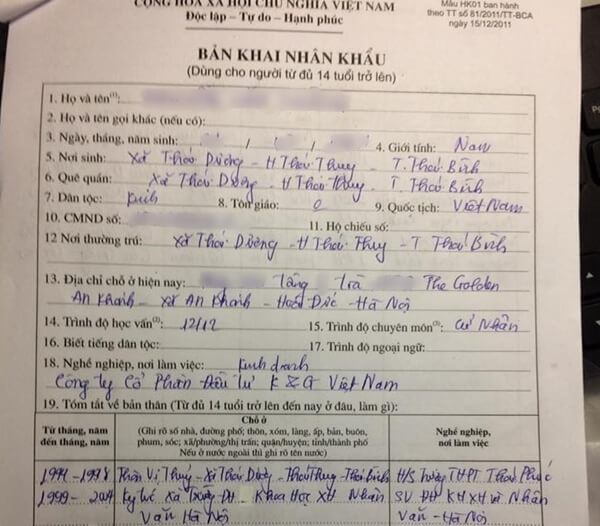 CỘNG HÒA XÃ HỘI CHỦ NGHĨA VIỆT NAM
Độc lập – Tự do – Hạnh phúc
Mẫu HK01 ban hành
theo TT số 81/2011/TT-BCA
ngày 15/12/2011
BẢN KHAI NHÂN KHẨU
(Dùng cho người từ đủ 14 tuổi trở lên)
1. Họ và tên(1):
2. Họ và tên gọi khác (nếu có):
3. Ngày, tháng, năm sinh: / / 4. Giới tính: Nam
5. Nơi sinh: Xã Thái Dương - H Thái Thụy - T. Thái Bình
6. Quê quán: Xã Thái Dương - H Thái Thụy - T Thái Bình
7. Dân tộc: Kinh 8. Tôn giáo: 0 9. Quốc tịch: Việt Nam
10. CMND số: 11. Hộ chiếu số:
12 Nơi thường trú: Xã Thái Dương - H Thái Thụy - T Thái Bình
13. Địa chỉ chỗ ở hiện nay: Tầng The Golden
An Khánh - Xã An Khánh - Hoài Đức - Hà Nội
14. Trình độ học vấn(2): 12/12 15. Trình độ chuyên môn(3): Cử Nhân
16. Biết tiếng dân tộc: 17. Trình độ ngoại ngữ:
18. Nghề nghiệp, nơi làm việc: Kinh doanh
Công ty Cổ Phần Đầu Tư Việt Nam
19. Tóm tắt về bản thân (Từ đủ 14 tuổi trở lên đến nay ở đâu, làm gì):
Từ tháng, năm
đến tháng, năm
Chỗ ở
(Ghi rõ số nhà, đường phố; thôn, xóm, làng, ấp, bản, buôn,
phum, sóc; xã/phường/thị trấn; quận/huyện; tỉnh/thành phố
Nếu ở nước ngoài thì ghi rõ tên nước)
Nghề nghiệp,
nơi làm việc
Thôn Vị Thủy - Xã Thái Dương - Thái Thụy - Thái Bình H/S Trường THPT Thái Phúc
Trường ĐH Khoa Học XH Nhân SV ĐH KHXH và Nhân
Văn Hà Nội Văn - Hà Nội